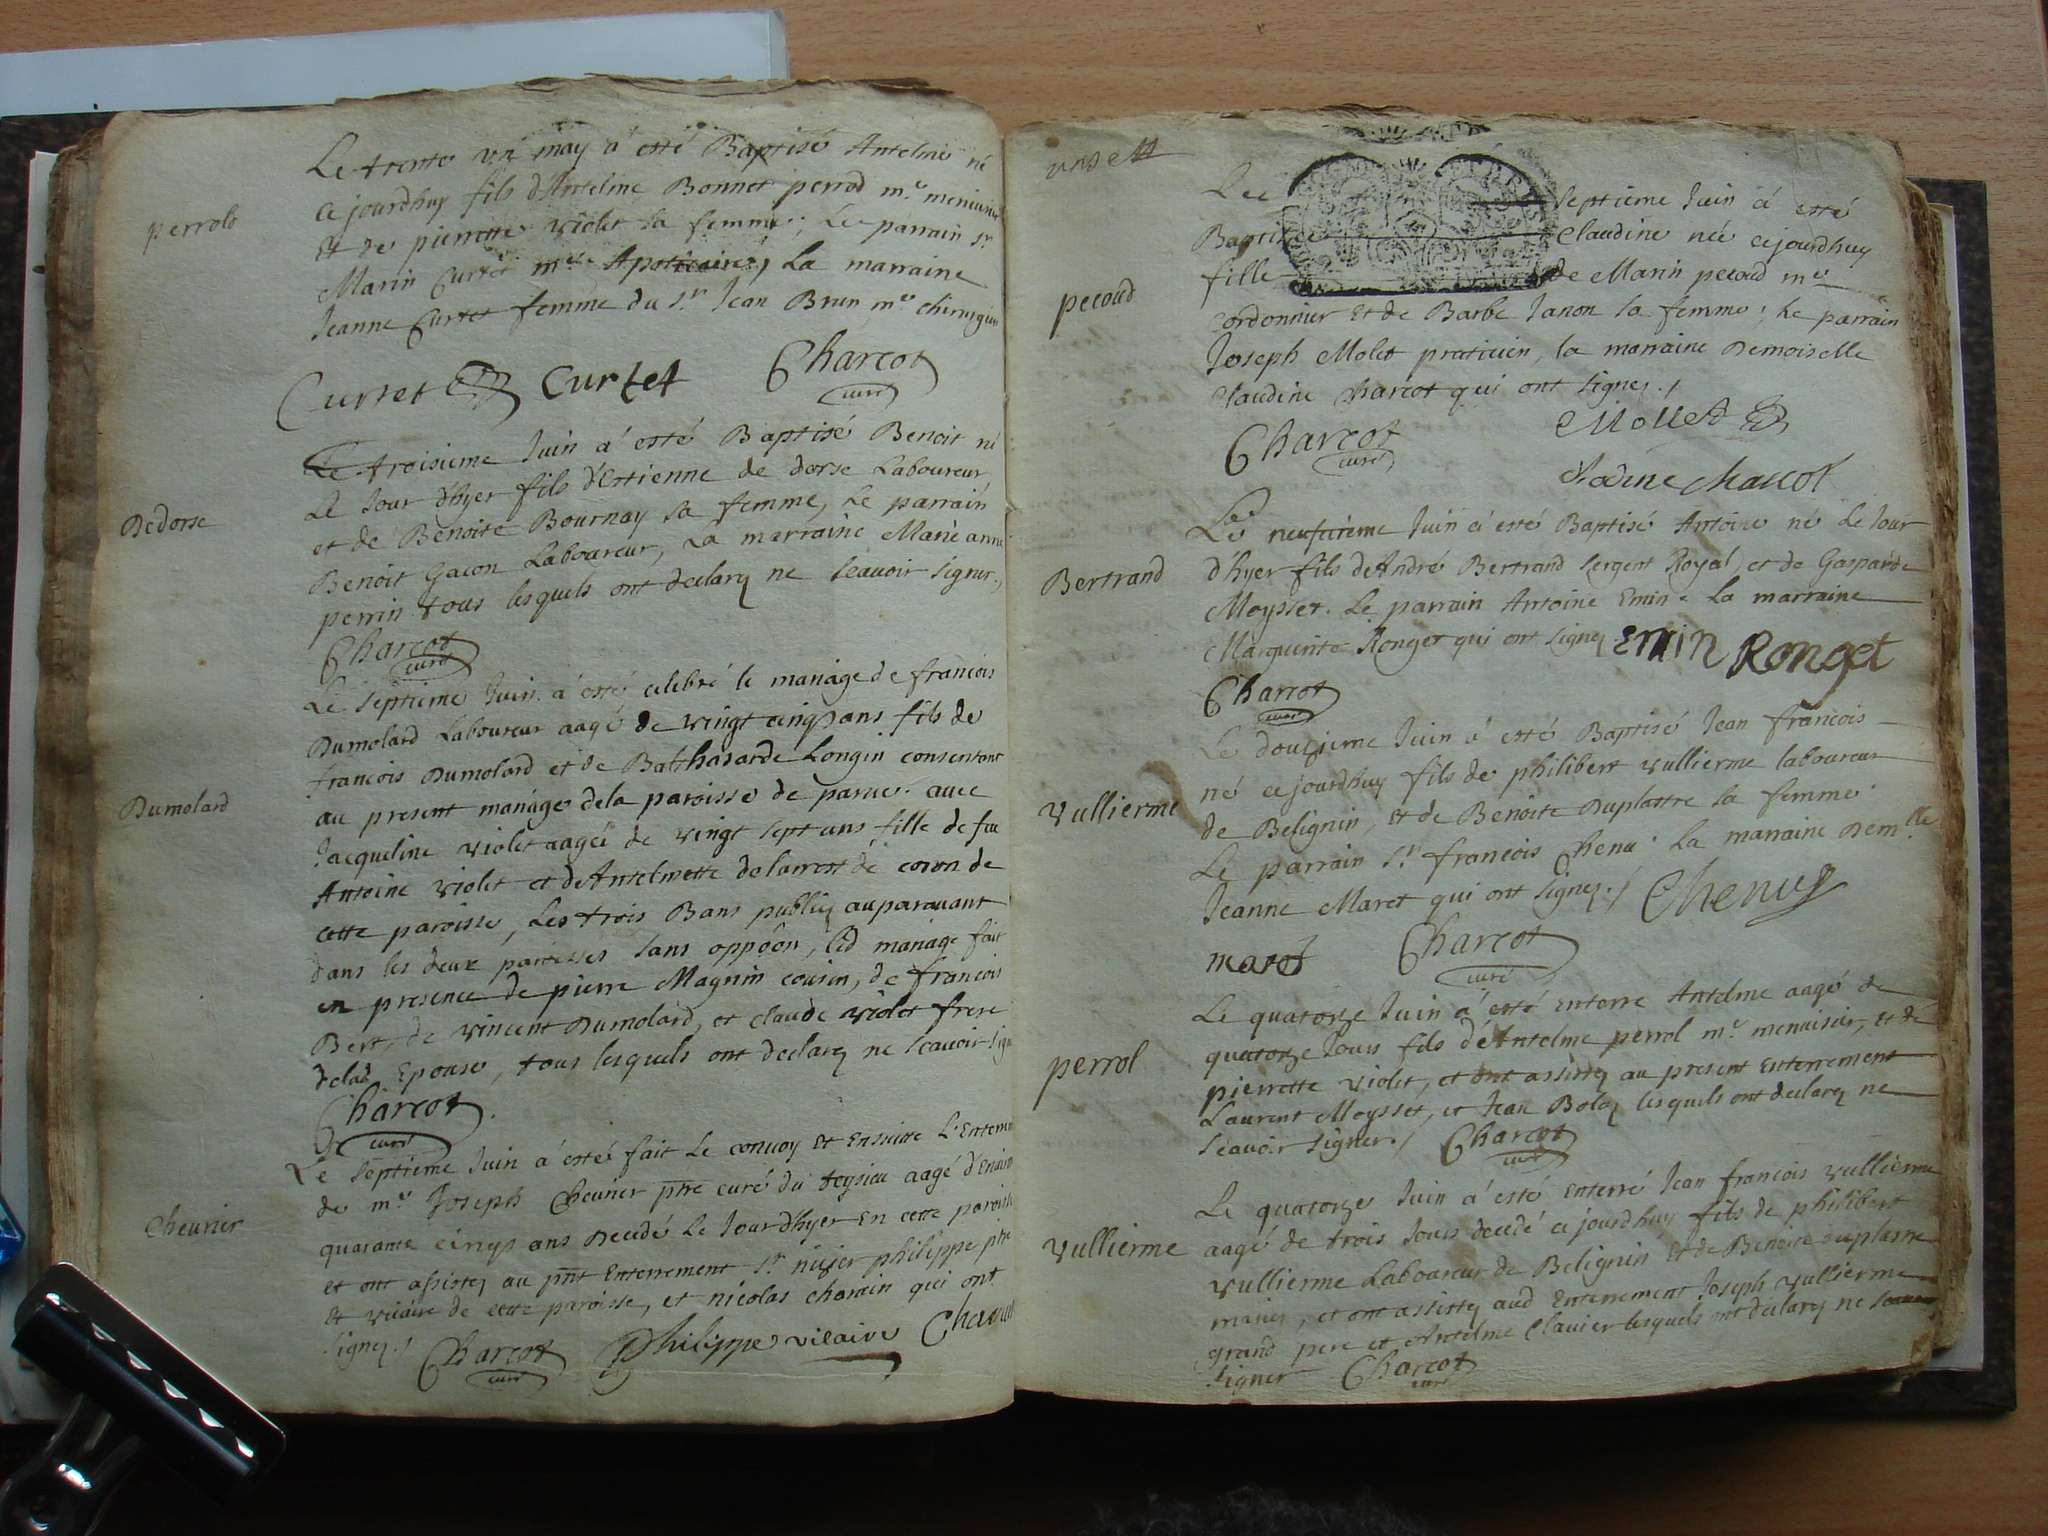 perrol
Le trente un may à esté Baptisé Antelme né
ce jourdhuy fils d'Antelme Bonnet perrod m.e menuisier
et de pierrette violet sa femme, Le parrain s.r
Marin Curtet m.e Apoticaire, La marraine
Jeanne Curtet femme du s.r Jean Brun m.e chirurgien
Curtet Curtet Charcot
curé
Dedorse
Le troisieme Juin à esté Baptisé Benoit né
Le Jour d'hyer fils d'Estienne de dorse Laboureur
et de Benoite Bournay sa femme, Le parrain
Benoit Gacon Laboureur, La marraine Marie anne
perrin tous lesquels ont declarez ne sçavoir signer.
Charcot
curé
Dumolard
Le septieme Juin à esté celebré le mariage de francois
Dumolard Laboureur aagé de vingt cinq ans fils de
francois Dumolard et de Balthasarde Longin consentant
au present mariage dela paroisse de parve. avec
Jacqueline violet aagée de vingt sept ans fille de feu
Antoine violet et de Antelmette delarrest de coron de
cette paroisse, Les trois Bans publiez auparavant
dans les deux paroisses sans oppôon, led mariage fait
en presence de pierre Magnin cousin, de francois
Bert, de vincent Dumolard, et claude violet frere
delad Epouse, tous lesquels ont declarez ne sçavoir sign
Charcot
curé
Cheurier
Le septieme Juin à esté fait Le convoy et Ensuitte L'Enterre
de m.e Joseph Cheurier ptre curé du teysieu aagé d'Environ
quarante cinq ans Decedé Le Jourdhyer En cette paroisse
et ont assistez au pñt Enterrement s.r nizier philippe ptre
et vicaire de cette paroisse, et nicolas charain qui ont
signez./ Charcot philippe vicaire
curé
Le septieme Juin à esté
Baptisée Claudine née cejourdhuy
pecoud
fille de Marin pecoud m.e
cordonnier et de Barbe Janon sa femme; Le parrain
Joseph Molet praticien, la marraine Demoiselle
Claudine Charcot qui ont signez./
Charcot Mollet
curé
clodine charcot
Bertrand
Le neufvieme Juin à esté Baptisé Antoine né Le Jour
d'hyer fils de André Bertrand sergent Royal, et de Gasparde
Moysset. Le parrain Antoine Emin. La marraine
Marguerite Ronget qui ont signez Emin Ronget
Charcot
curé
vullierme
Le douzieme Juin à esté Baptisé Jean francois
né ce jourdhuy fils de philibert vullierme laboureur
de Belignin, et de Benoite Duplastre sa femme.
Le parrain s.r francois Chenu. La marraine Dem.lle
Jeanne Maret qui ont signez./ Chenu
maret Charcot
curé
perrol
Le quatorze Juin à esté enterré Antelme aagé de
quatorze Jours fils de Antelme perrol m.e menuisier, et de
pierrette violet, et ont assistez au present Enterrement
Laurent Moysset, et Jean Bolaz lesquels ont declarez ne
sçavoir signer./ Charcot
curé
vullierme
Le quatorze Juin à esté Enterré Jean francois vullierme
aagé de trois Jours decedé ce jourdhuy fils de philibert
vullierme Laboureur de Belignin et de Benoite duplastre
mariez, et ont assistez aud Enterrement Joseph vullierme
grand pere et Antelme Clavier lesquels ont declarez ne sçavoir
signer Charcot
curé